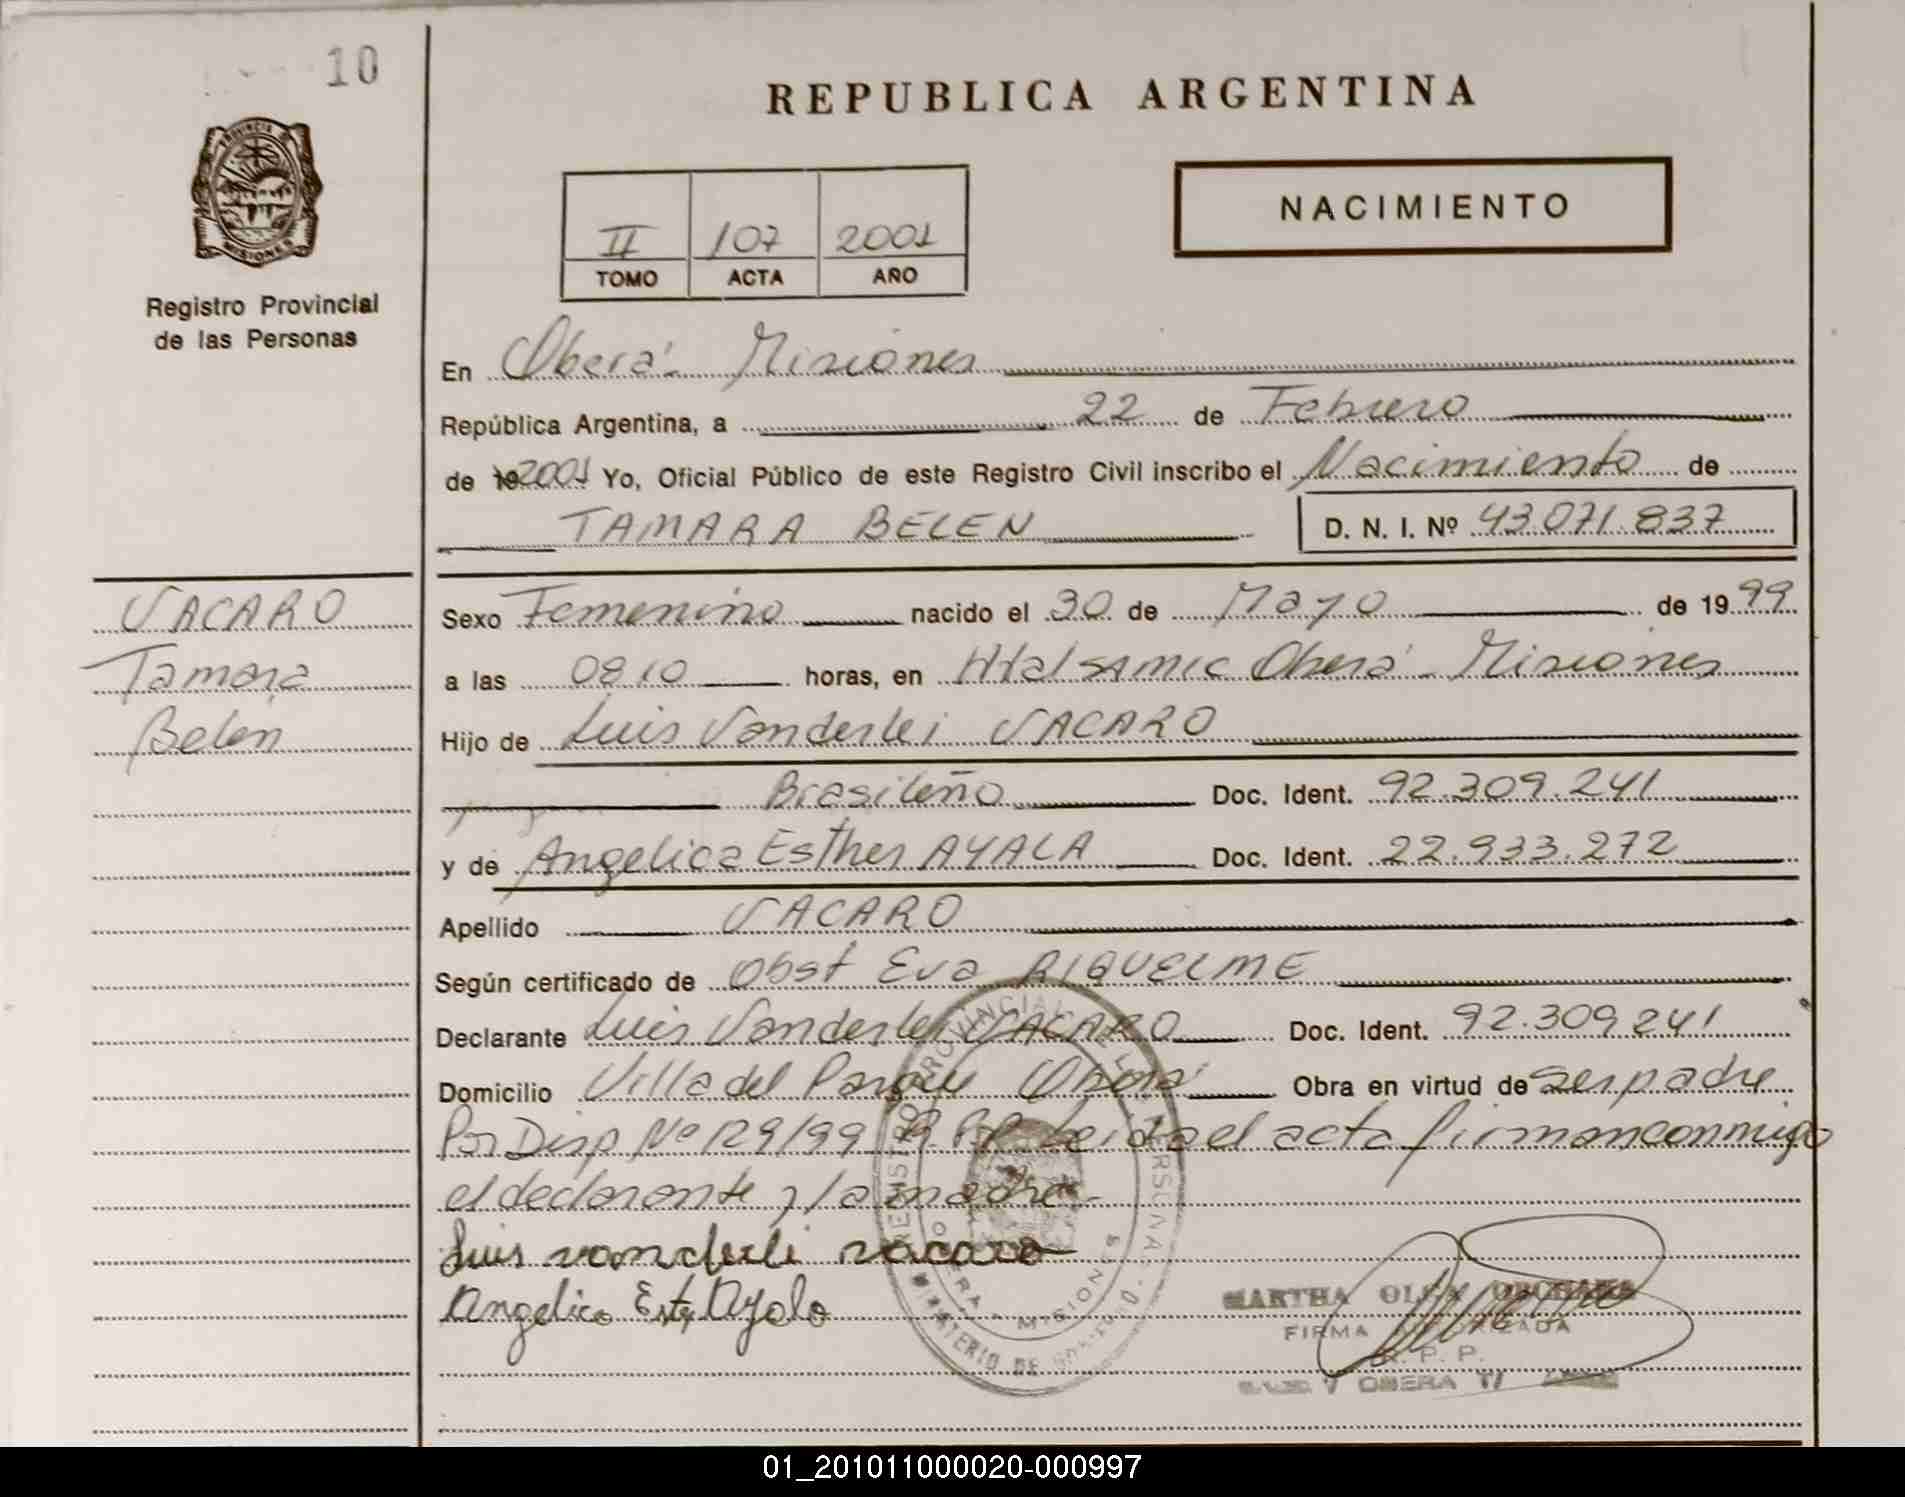 10
REPUBLICA ARGENTINA
PROVINCIA DE MISIONES
NACIMIENTO
II 107 2001
TOMO ACTA AÑO
Registro Provincial
de las Personas
En Oberá - Misiones
República Argentina, a 22 de Febrero
de 19 2001 Yo, Oficial Público de este Registro Civil inscribo el Nacimiento de
TAMARA BELEN D. N. I. Nº 43.071.837
VACARO
Tamara
Belén
Sexo Femenino nacido el 30 de Mayo de 1999
a las 0810 horas, en Htal SAMIC Oberá - Misiones
Hijo de Luis Vanderlei VACARO
Brasileño Doc. Ident. 92.309.241
y de Angelica Esther AYALA Doc. Ident. 22.933.272
Apellido VACARO
Según certificado de Obst Eva RIQUELME
Declarante Luis Vanderlei VACARO Doc. Ident. 92.309.241
Domicilio Villa del Parque Oberá Obra en virtud de ser padre
Por Disp Nº 129/99 R.P.P. Leida el acta firman conmigo
el declarante y la madre.-
Luis vanderli vacaro
Angelica Ester Ayala
REGISTRO PROVINCIAL DE LAS PERSONAS
MINISTERIO DE
OBERA - MISIONES
MARTHA OLGA
FIRMA AUTORIZADA
R. P. P.
OBERA
01_201011000020-000997